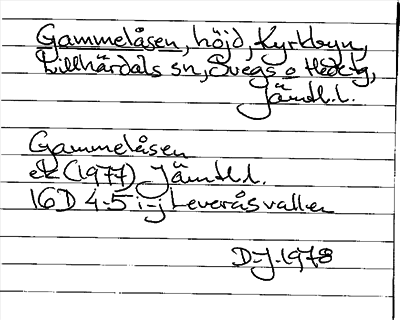 Gammelåsen, höjd, Kyrkbyn,
Lillhärdals sn, Svegs o Hedetg,
Jämtl.l.
Gammelåsen
ek (1977) Jämtl.l.
16D 4-5 i-j Leveråsvallen
D-J-1978